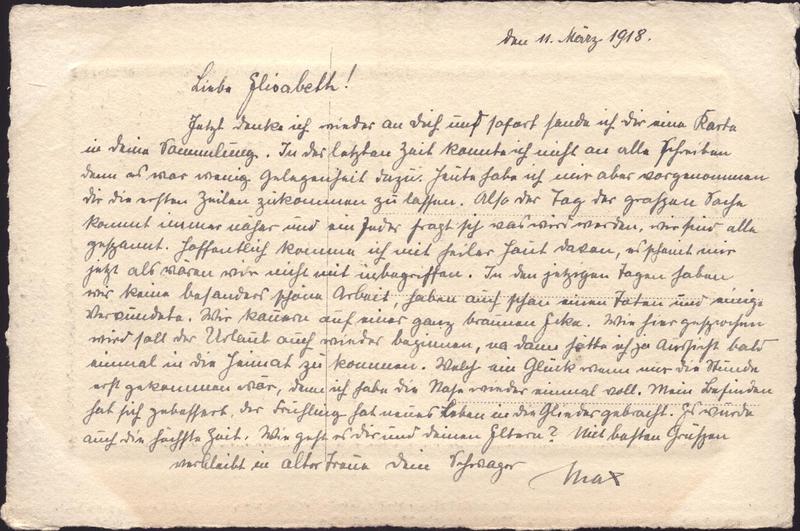 den 11. März 1918.
Liebe Elisabeth!
Jetzt denke ich wieder an dich und sofort sende ich dir eine Karte
in deine Sammlung. In der letzten Zeit konnte ich nicht an alle schreiben
denn es war wenig Gelegenheit dazu. Heute habe ich mir aber vorgenommen
dir die ersten Zeilen zukommen zu lassen. Also der Tag der grossen Sache
kommt immer näher und ein Jeder fragt sich was wird werden, wir sind alle
gespannt. Hoffentlich komme ich mit heiler Haut davon, es scheint mir
jetzt als wären wir nicht mit inbegriffen. In den jetzigen Tagen haben
wir keine besonders schöne Arbeit, haben auch schon einen Toten und einige
Verwundete. Wir kauern auf einer ganz braunen Ecke. Wie hier gesprochen
wird soll der Urlaub auch wieder beginnen, na dann hätte ich ja Aussicht bald
einmal in die Heimat zu kommen. Welch ein Glück wenn mir die Stunde
erst gekommen wär, denn ich habe die Nase wieder einmal voll. Mein Befinden
hat sich gebessert, der Frühling hat neues Leben in die Glieder gebracht. Es wurde
auch die höchste Zeit. Wie geht es dir und deinen Eltern? Mit besten Grüssen
verbleibt in alter Treue dein Schwager
Max